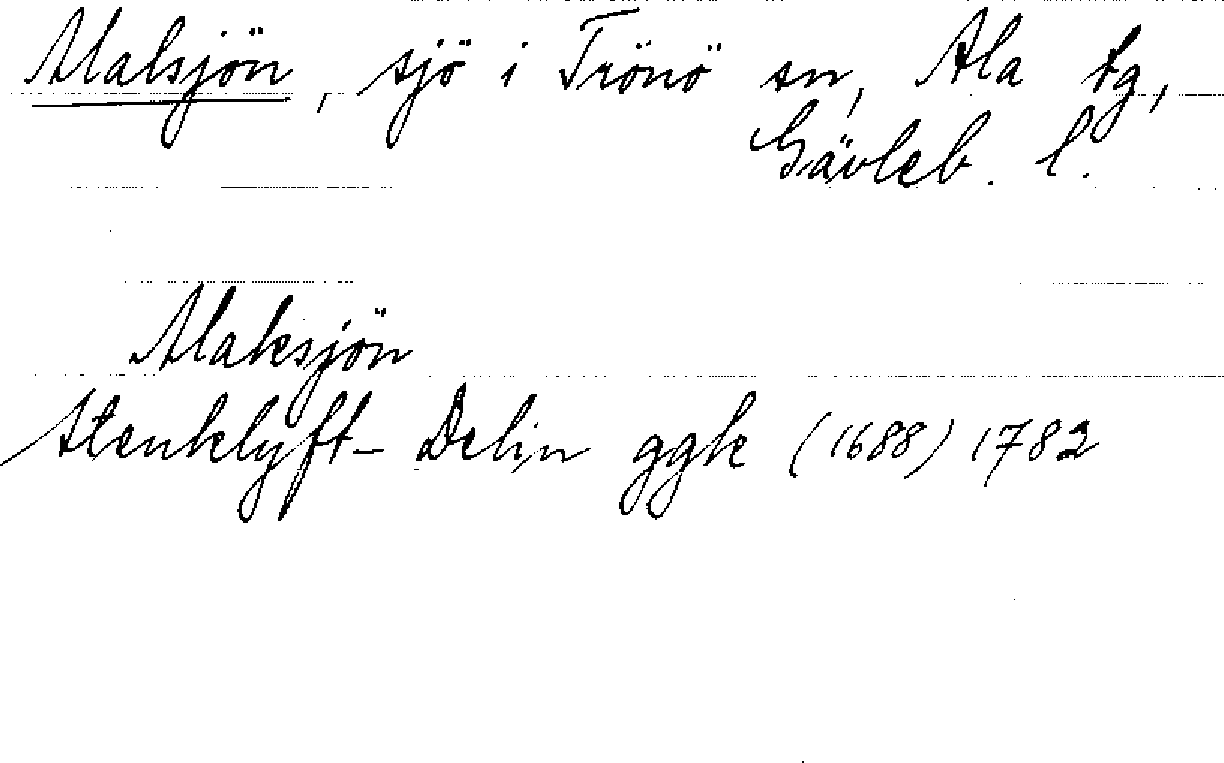 Alaksjön, sjö i Trönö sn, Ala tg,
Gävleb. l.
Alaksjön
Stenklyft- Delin ggk (1688) 1782